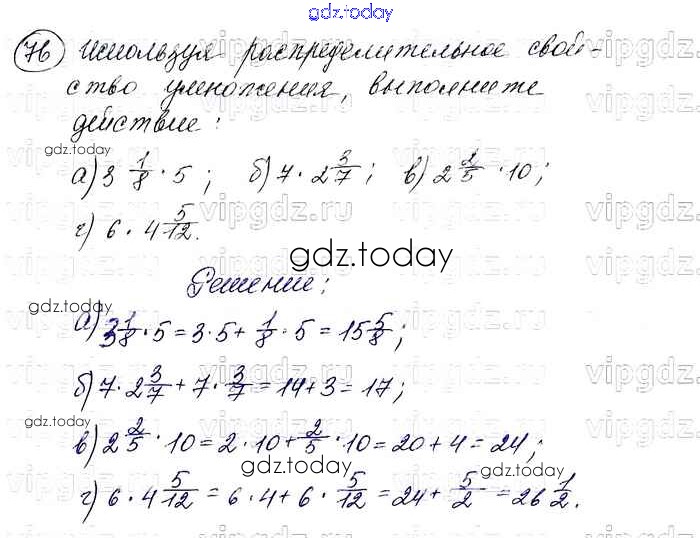 gdz.today
76 Используя распределительное свой-
ство умножения, выполните
действие:
gdz.today
а) 3 1/8 · 5; б) 7 · 2 3/7; в) 2 2/5 · 10;
г) 6 · 4 5/12.
gdz.today
Решение:
gdz.today
а) 3 1/8 · 5 = 3 · 5 + 1/8 · 5 = 15 5/8;
б) 7 · 2 3/7 + 7 · 3/7 = 14 + 3 = 17;
gdz.today
в) 2 2/5 · 10 = 2 · 10 + 2/5 · 10 = 20 + 4 = 24;
gdz.today
gdz.today
г) 6 · 4 5/12 = 6 · 4 + 6 · 5/12 = 24 + 5/2 = 26 1/2.
vipgdz.ru